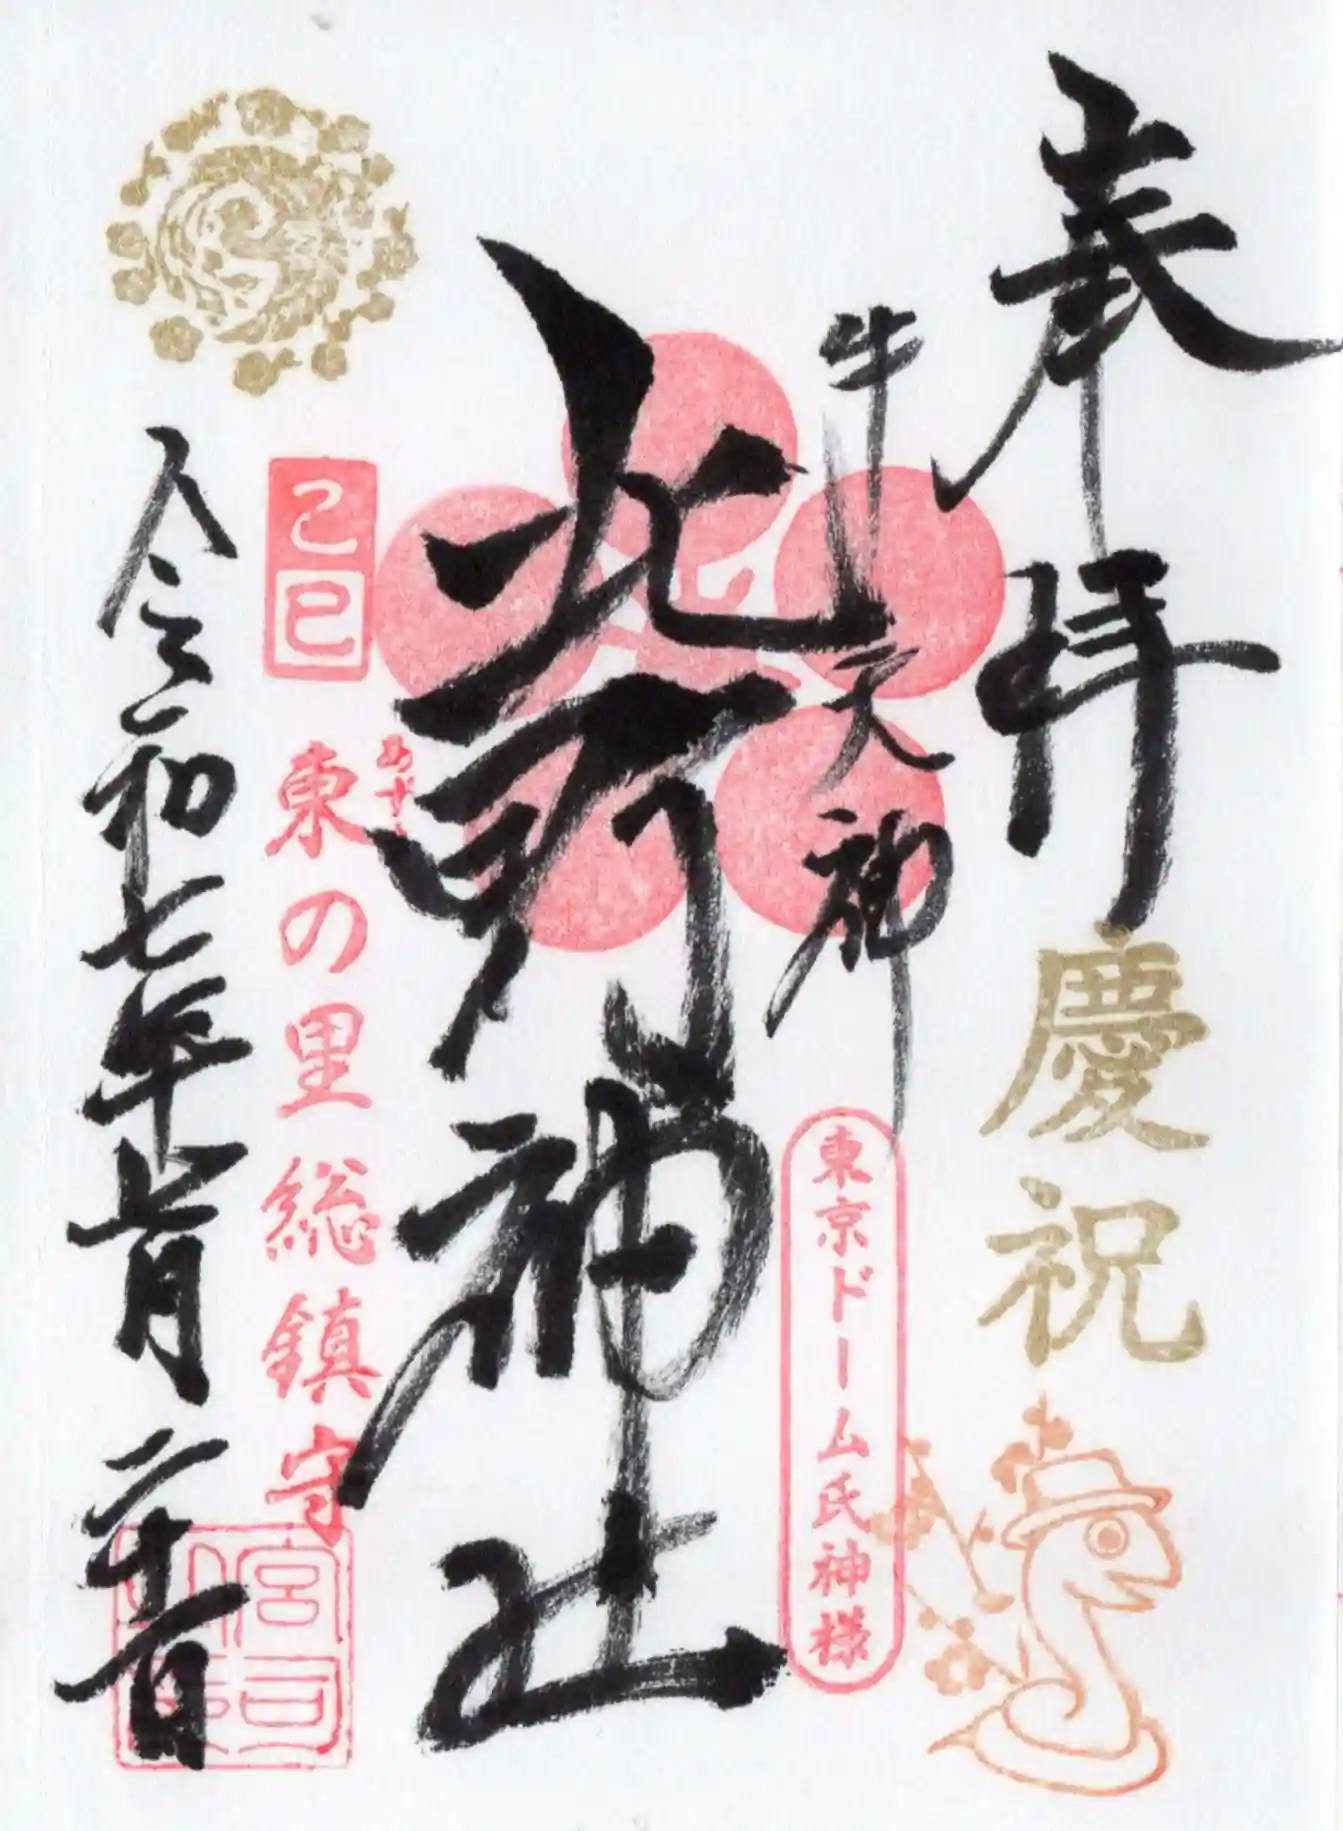 奉拝
慶祝
牛天神
東京ドーム氏神様
北野神社
あず
東の里総鎮守
乙巳
宮司
令和七年